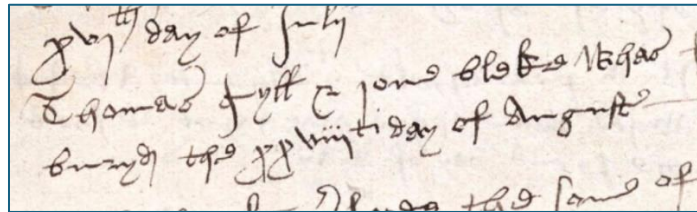 xvi th day of July
Thomas Gyll & Jone bleke Whas
buryd the xxviii ti day of August
the sone of